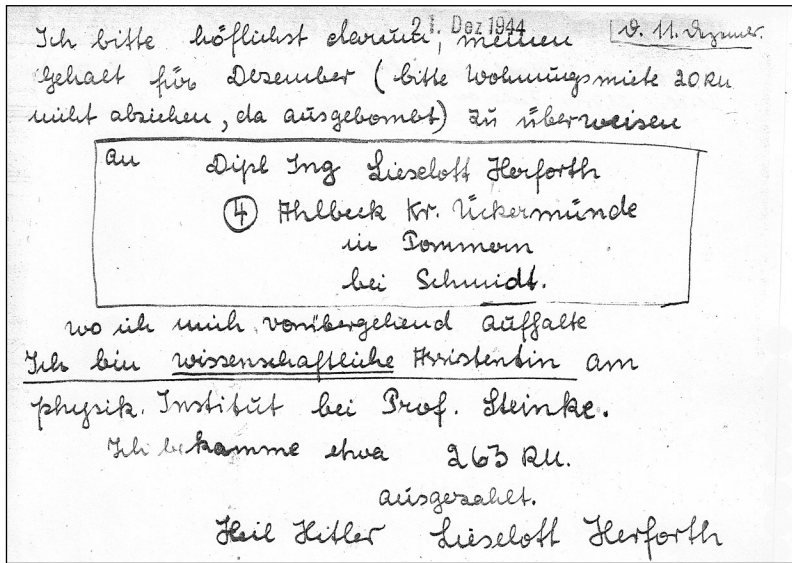 21. Dez 1944
d. 11. Dezember.
Ich bitte höflichst darum, meinen
Gehalt für Dezember (bitte Wohnungsmiete 20 RM
nicht abziehen, da ausgebombt) zu überweisen
an Dipl Ing Lieselott Herforth
4 Ahlbeck Kr. Ückermünde
in Pommern
bei Schmidt.
wo ich mich vorübergehend aufhalte
Ich bin wissenschaftliche Assistentin am
physik. Institut bei Prof. Steinke.
Ich bekomme etwa 263 RM.
ausgezahlt.
Heil Hitler Lieselott Herforth